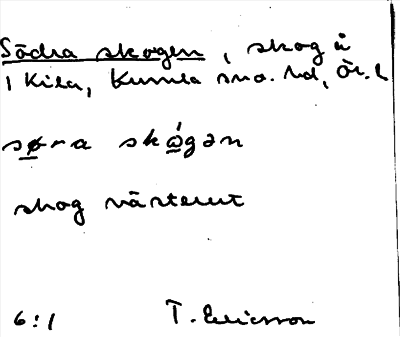 Södra skogen, skog å
1 Kila, Kumla sn o. hd, Ör. l
søra skó̱gən
skog västerut
6:1 T. Ericsson